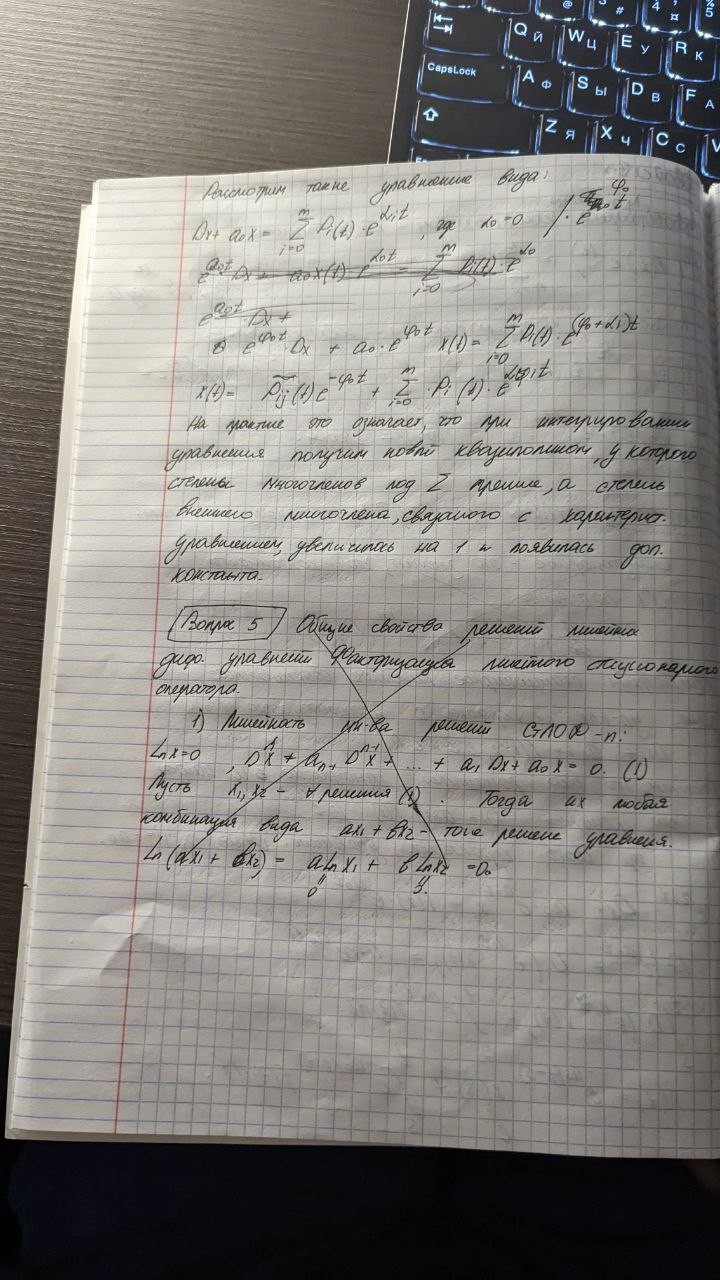 @ # 3 $ 4 ¤ % 5
Q Й W Ц E У R К
CapsLock A Ф S Ы D В F А
Z Я X Ч C С V
Рассмотрим также уравнение вида:
Dx + a₀x = Σ_{i=0}^{m} Pᵢ(t)·e^{αᵢt}, где α₀=0 / · e^{φ₀t}
e^{a₀t} Dx + a₀x(t) e^{α₀t} = Σ_{i=0}^{m} Pᵢ(t)·e^{α₀}
e^{a₀t} Dx +
e^{φ₀t} · Dx + a₀·e^{φ₀t} x(t) = Σ_{i=0}^{m} Pᵢ(t)·e^{(φ₀+αᵢ)t}
x(t) = P̃ᵢⱼ(t)e^{-φ₀t} + Σ_{i=0}^{m} · Pᵢ(t)·e^{αᵢt}
На практике это означает, что при интегрировании
уравнения получим новый квазиполином, у которого
степени многочленов под Σ прежние, а степень
внешнего многочлена, связаного с характерист.
уравнением, увеличилась на 1 и появилась доп.
константа.
Вопрос 5 Общие свойства решений линейных
диф. уравнений Факторизация линейного стационарного
оператора.
1) Линейность мн-ва решений СЛОО-n:
Lₙx=0, Dⁿx + aₙ₋₁Dⁿ⁻¹x + ... + a₁Dx + a₀x = 0. (1)
Пусть x₁,x₂ - ∀ решения (1). Тогда их любая
комбинация вида ax₁ + bx₂ - тоже решение уравнения.
Lₙ(ax₁ + bx₂) = aLₙx₁ + bLₙx₂ = 0.
" "
0